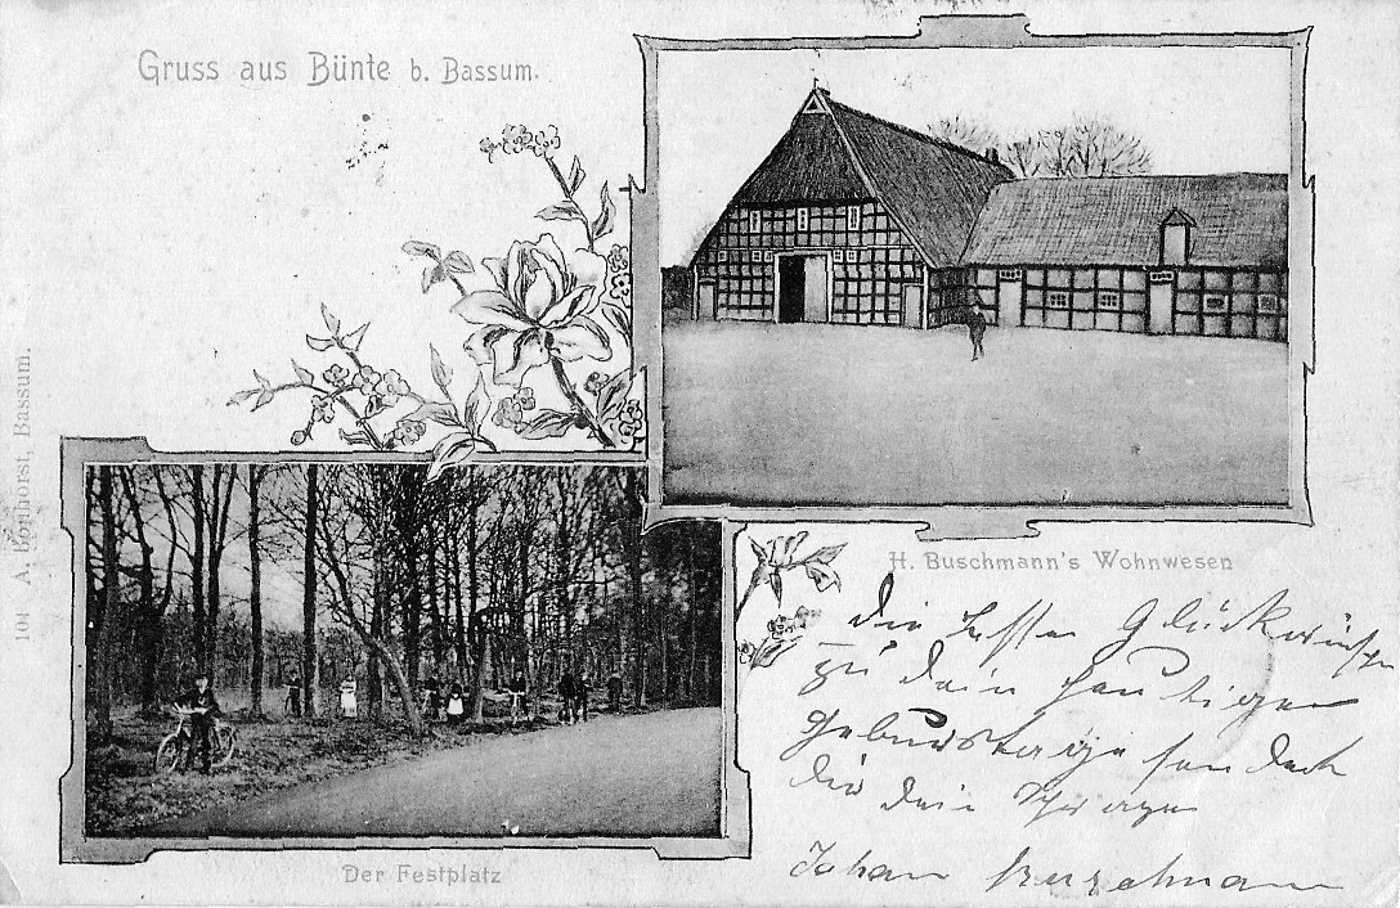 Gruss aus Bünte b. Bassum.
H. Buschmann's Wohnwesen
Die besten Glückwünsche
zu dein heutigen
Geburstage sendet
Dir dein
Johan
Der Festplatz
104 A. Bonhorst, Bassum.